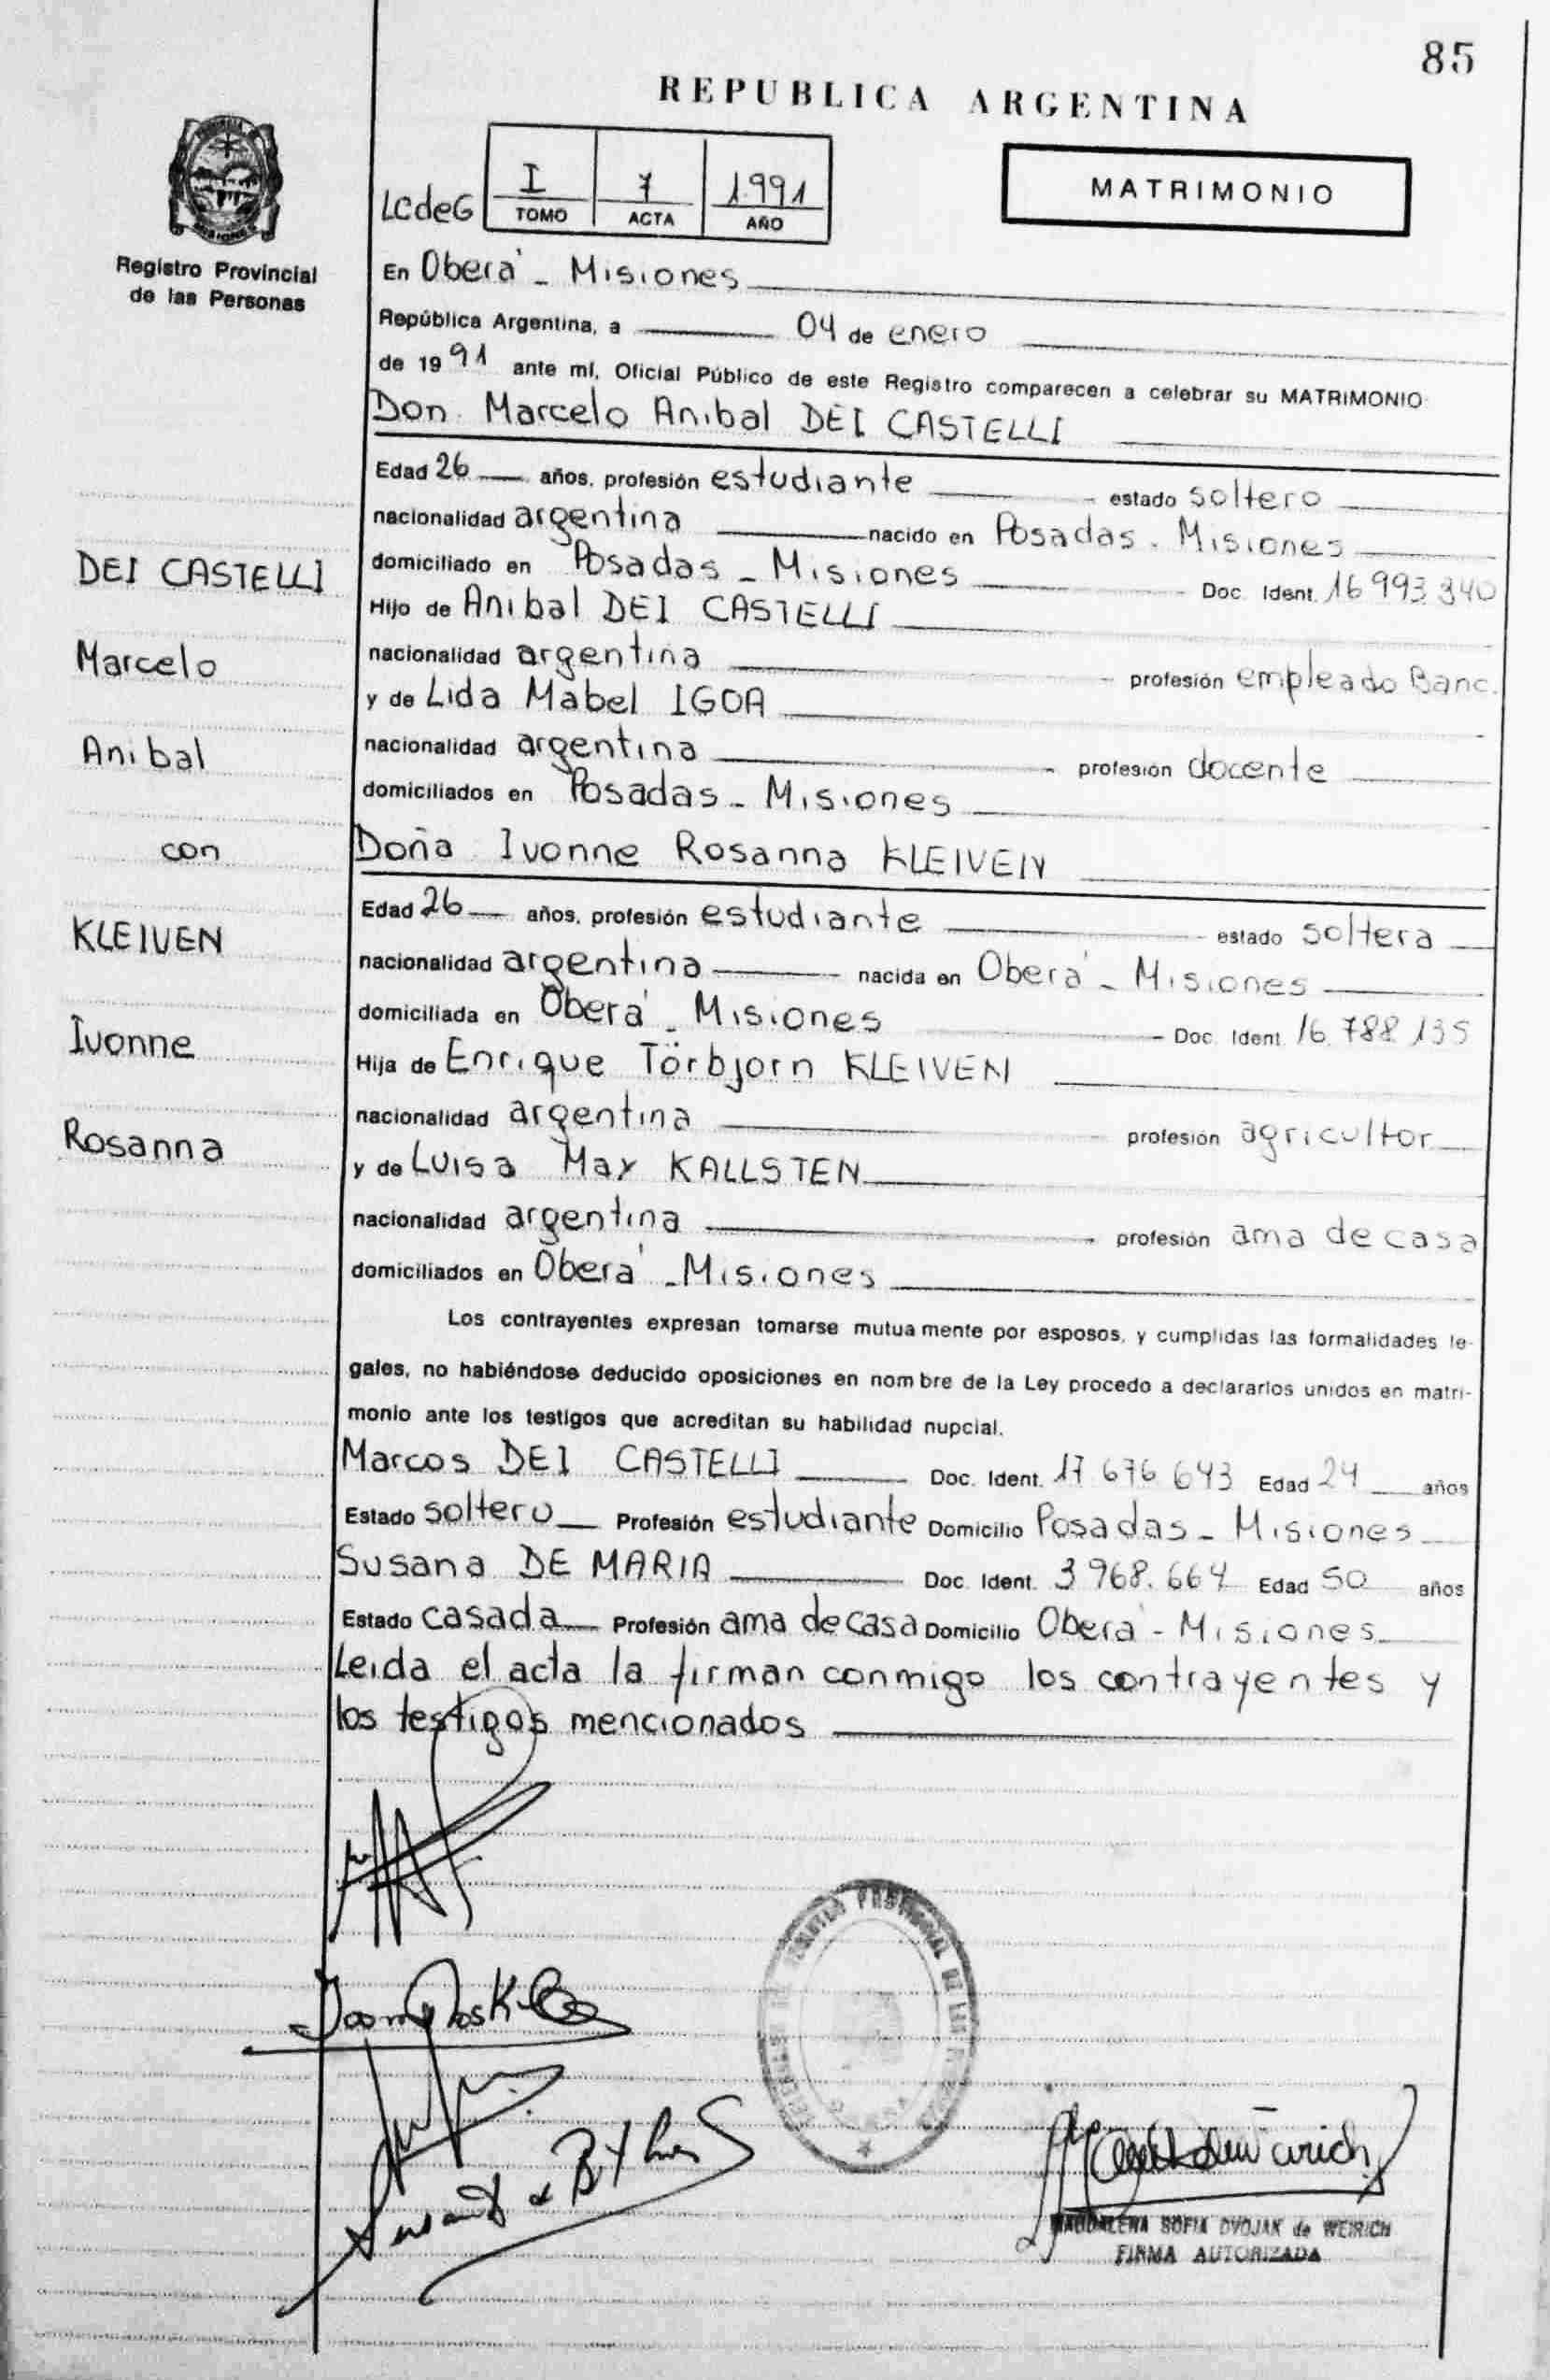 85
REPUBLICA ARGENTINA
LCdeG I TOMO 7 ACTA 1991 AÑO
MATRIMONIO
Registro Provincial
de las Personas
En Oberá - Misiones
República Argentina, a 04 de enero
de 1991 ante mí, Oficial Público de este Registro comparecen a celebrar su MATRIMONIO
Don Marcelo Anibal DEI CASTELLI
Edad 26 años, profesión estudiante estado soltero
nacionalidad argentina nacido en Posadas - Misiones
domiciliado en Posadas - Misiones Doc. Ident. 16 993 940
Hijo de Anibal DEI CASTELLI
nacionalidad argentina profesión empleado Banc.
y de Lida Mabel IGOA
nacionalidad argentina profesión docente
domiciliados en Posadas - Misiones
Doña Ivonne Rosanna KLEIVEN
Edad 26 años, profesión estudiante estado soltera
nacionalidad argentina nacida en Oberá - Misiones
domiciliada en Oberá - Misiones Doc. Ident. 16.788.135
Hija de Enrique Törbjorn KLEIVEN
nacionalidad argentina profesión agricultor
y de Luisa May KALLSTEN
nacionalidad argentina profesión ama de casa
domiciliados en Oberá - Misiones
Los contrayentes expresan tomarse mutuamente por esposos, y cumplidas las formalidades le-
gales, no habiéndose deducido oposiciones en nombre de la Ley procedo a declararlos unidos en matri-
monio ante los testigos que acreditan su habilidad nupcial.
Marcos DEI CASTELLI Doc. Ident. 17 676 643 Edad 24 años
Estado soltero Profesión estudiante Domicilio Posadas - Misiones
Susana DE MARIA Doc. Ident. 3 968.664 Edad 50 años
Estado casada Profesión ama de casa Domicilio Oberá - Misiones
Leida el acta la firman conmigo los contrayentes y
los testigos mencionados
DEI CASTELLI
Marcelo
Anibal
con
KLEIVEN
Ivonne
Rosanna
MAGDALENA SOFIA DVOJAK de WEIRICH
FIRMA AUTORIZADA